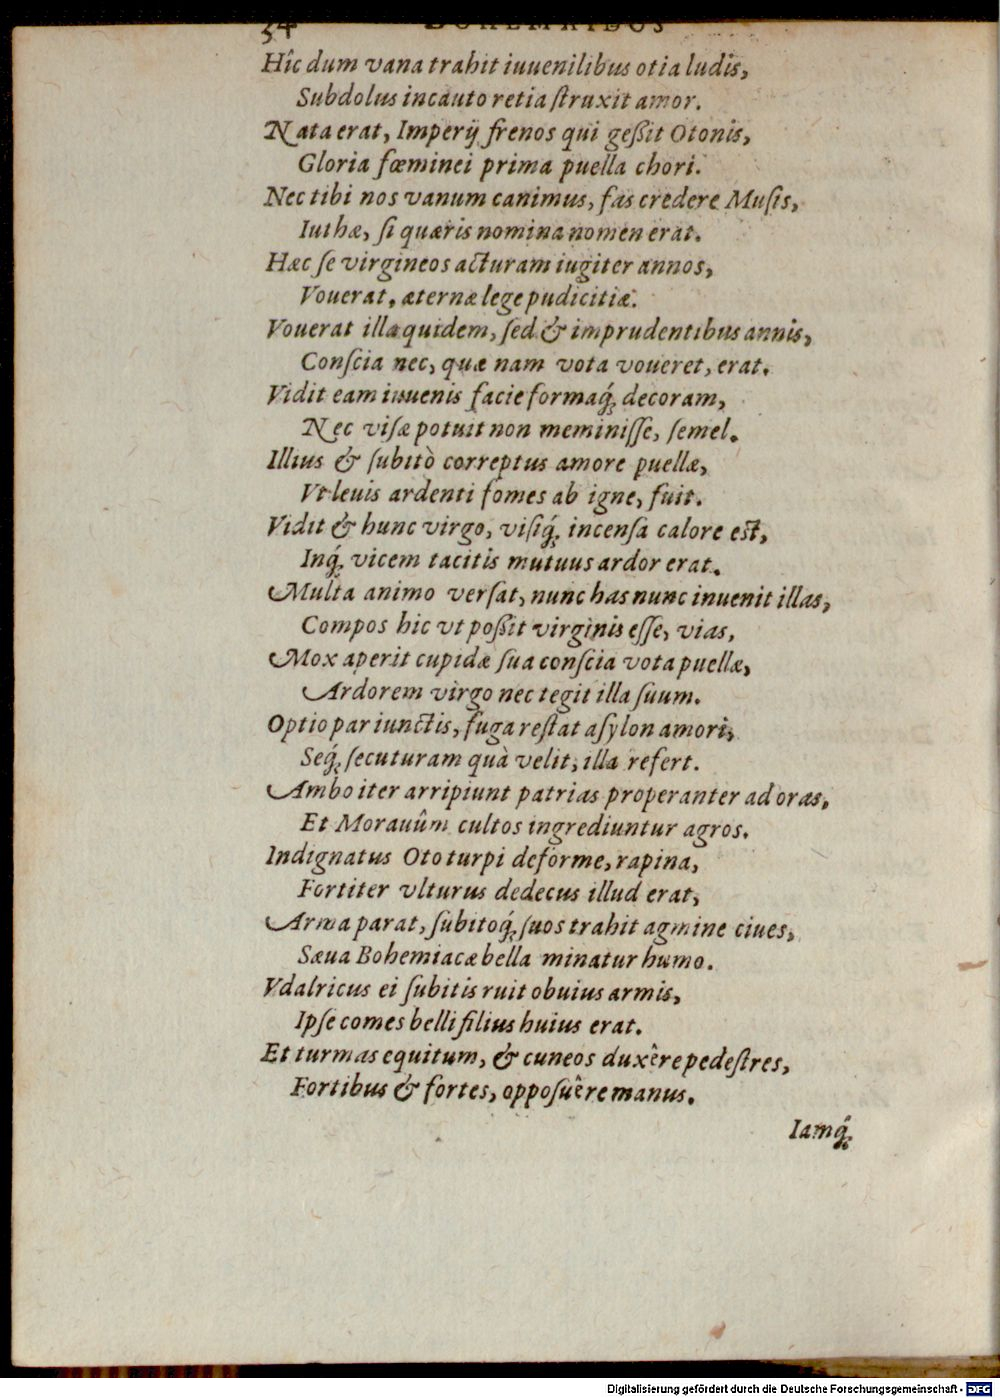 54
Hîc dum vana trahit iuuenilibus otia ludis,
Subdolus incauto retia ſtruxit amor.
Nata erat, Imperij frenos qui geßit Otonis,
Gloria fœminei prima puella chori.
Nec tibi nos vanum canimus, fas credere Muſis,
Iuthæ, ſi quæris nomina nomen erat.
Hæc ſe virgineos acturam iugiter annos,
Vouerat, æternæ lege pudicitiæ.
Vouerat illa quidem, ſed & imprudentibus annis,
Conſcia nec, quæ nam vota voueret, erat.
Vidit eam iuuenis facie formaq́; decoram,
Nec viſæ potuit non meminiſſe, ſemel.
Illius & ſubitò correptus amore puellæ,
Vt leuis ardenti fomes ab igne, fuit.
Vidit & hunc virgo, viſiq́; incenſa calore eſt,
Inq́; vicem tacitis mutuus ardor erat.
Multa animo verſat, nunc has nunc inuenit illas,
Compos hic vt poßit virginis eſſe, vias,
Mox aperit cupidæ ſua conſcia vota puellæ,
Ardorem virgo nec tegit illa ſuum.
Optio par iunctis, fuga reſtat aſylon amori,
Seq́; ſecuturam quà velit, illa refert.
Ambo iter arripiunt patrias properanter ad oras,
Et Morauûm cultos ingrediuntur agros.
Indignatus Oto turpi deforme, rapina,
Fortiter vlturus dedecus illud erat,
Arma parat, ſubitoq́; ſuos trahit agmine ciues,
Sæua Bohemiacæ bella minatur humo.
Vdalricus ei ſubitis ruit obuius armis,
Ipſe comes belli filius huius erat.
Et turmas equitum, & cuneos duxêre pedeſtres,
Fortibus & fortes, oppoſuêre manus.
Iamq́;
Digitalisierung gefördert durch die Deutsche Forschungsgemeinschaft - DFG